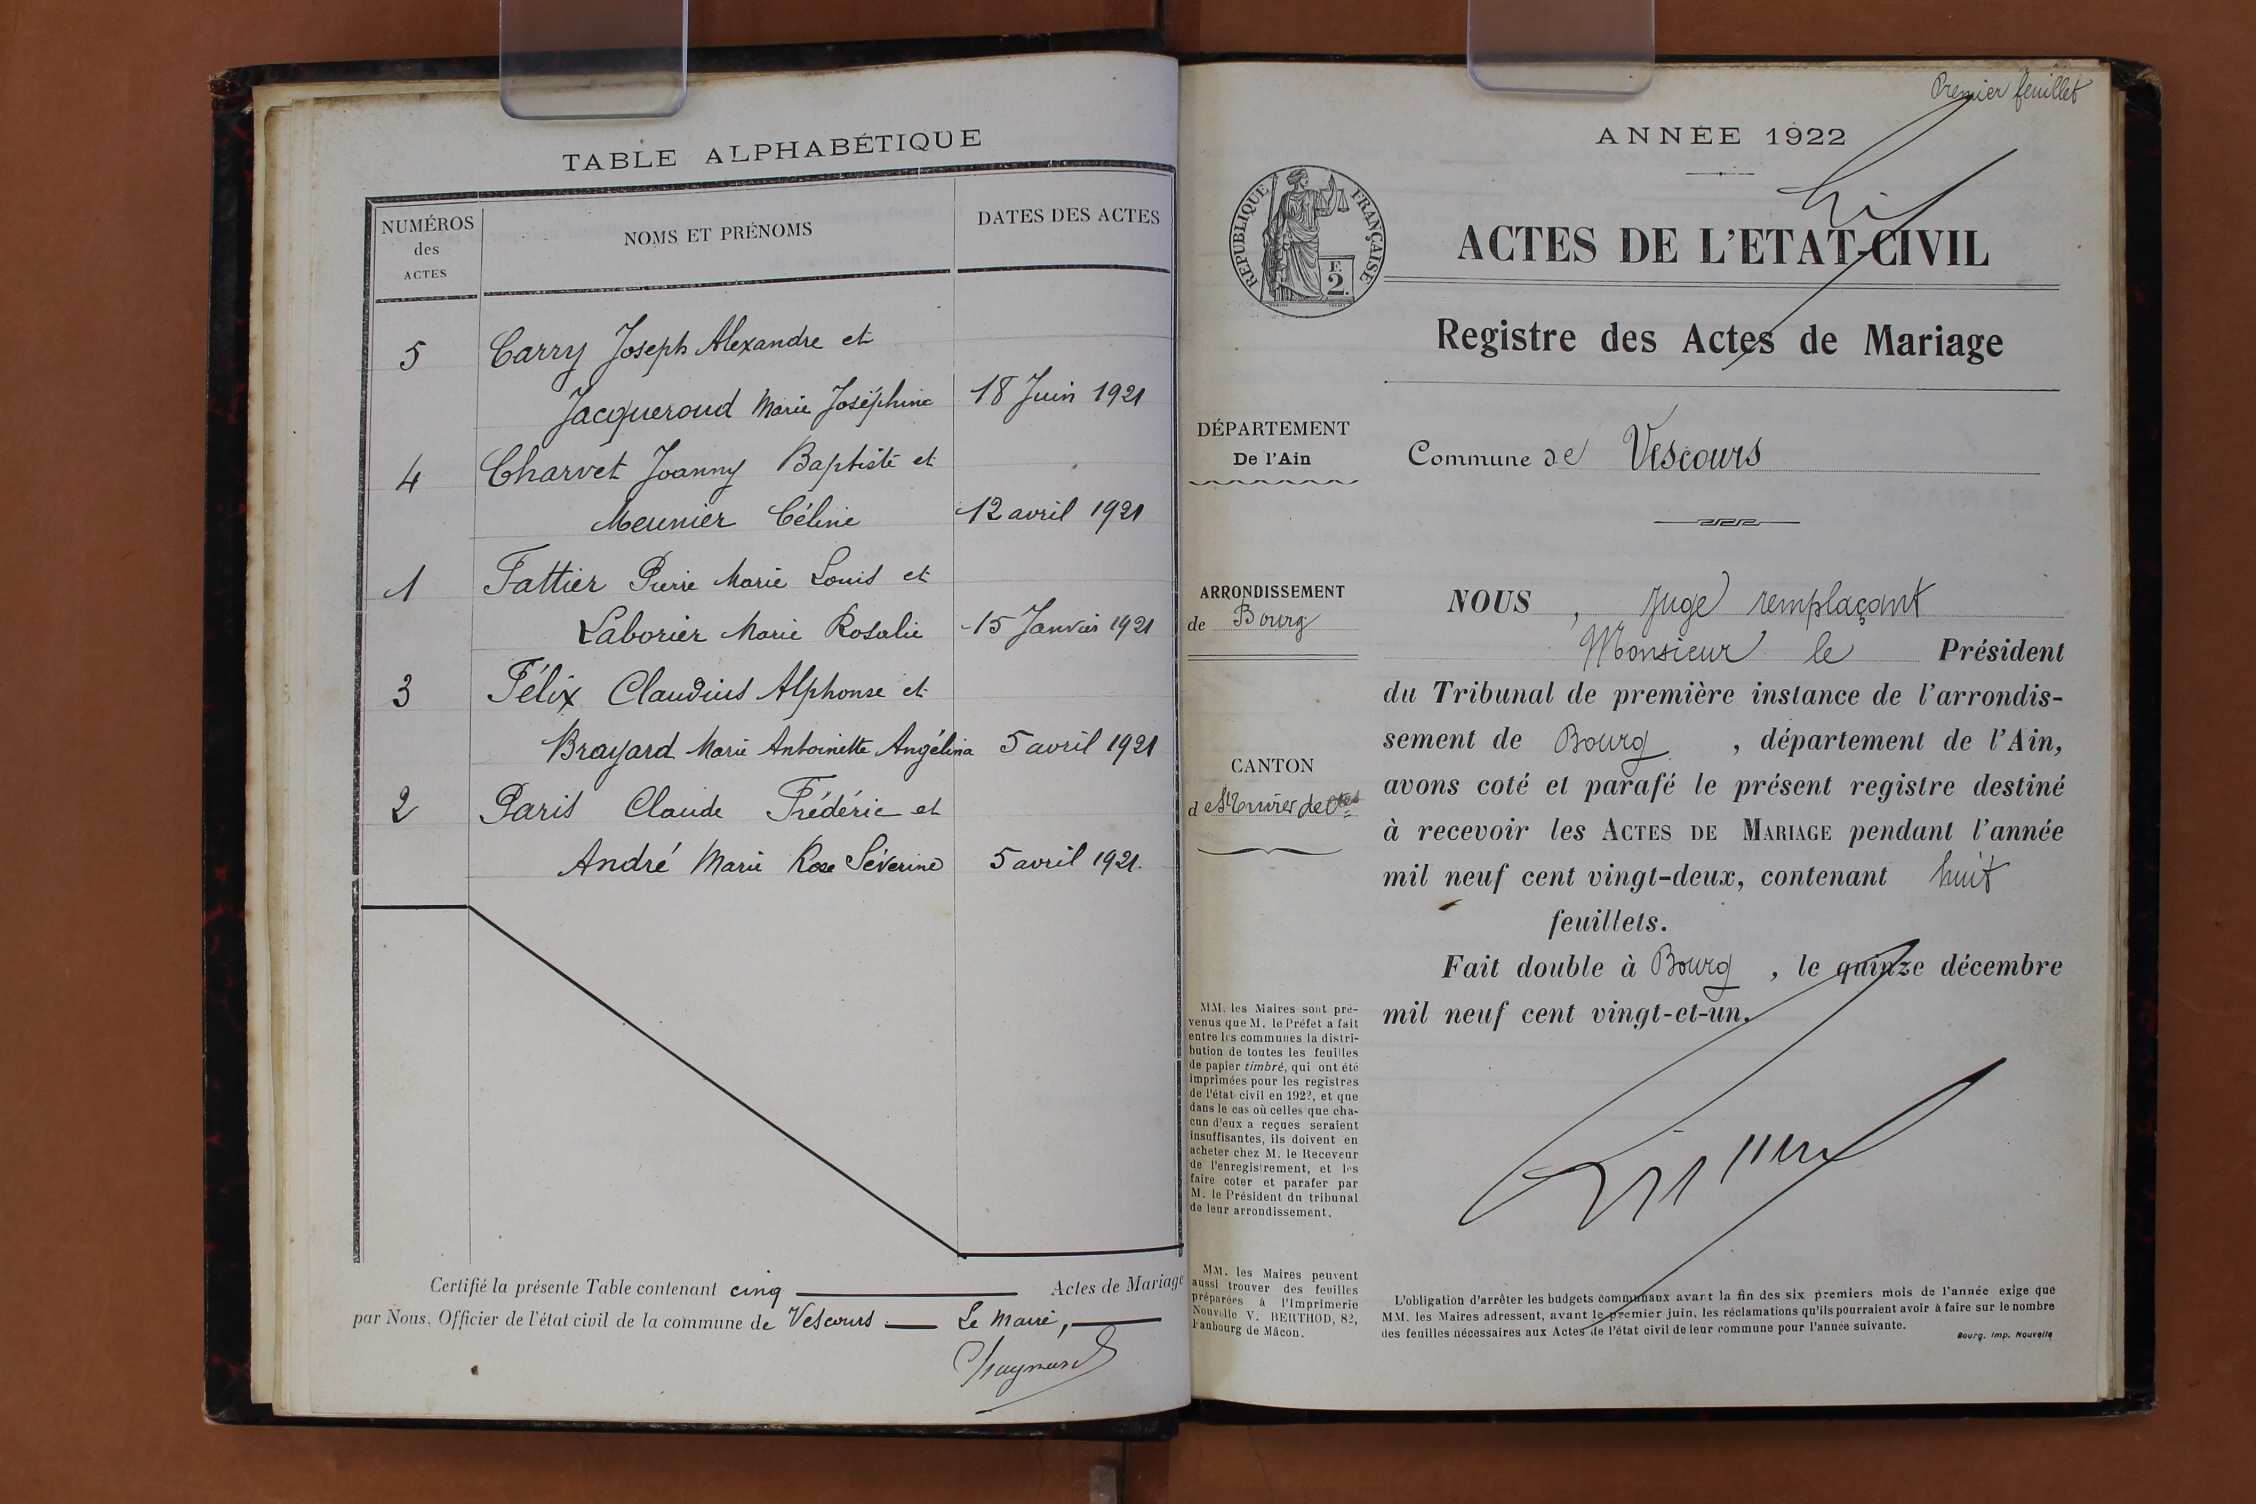 TABLE ALPHABÉTIQUE
NUMÉROS
des
ACTES
NOMS ET PRÉNOMS
DATES DES ACTES
5 Carry Joseph Alexandre et
Jacqueroud Marie Joséphine 18 Juin 1921
4 Charvet Joanny Baptiste et
Meunier Céline 12 avril 1921
1 Fattier Pierre Marie Louis et
Laborier Marie Rosalie 15 Janvier 1921
3 Félix Claudius Alphonse et
Brayard Marie Antoinette Angélina 5 avril 1921
2 Paris Claude Frédéric et
André Marie Rose Séverine 5 avril 1921.
Certifié la présente Table contenant cinq Actes de Mariage
par Nous, Officier de l'état civil de la commune de Vescours Le Maire,
Premier feuillet
ANNÉE 1922
RÉPUBLIQUE FRANÇAISE
F.
2.
ACTES DE L'ETAT-CIVIL
Registre des Actes de Mariage
DÉPARTEMENT
De l'Ain
Commune de Vescours
ARRONDISSEMENT
de Bourg
CANTON
MM. les Maires sont pré-
venus que M. le Préfet a fait
entre les communes la distri-
bution de toutes les feuilles
de papier timbré, qui ont été
imprimées pour les registres
de l'état civil en 1922, et que
dans le cas où celles que cha-
cun d'eux a reçues seraient
insuffisantes, ils doivent en
acheter chez M. le Receveur
de l'enregistrement, et les
faire coter et parafer par
M. le Président du tribunal
de leur arrondissement.
MM. les Maires peuvent
aussi trouver des feuilles
préparées à l'Imprimerie
Nouvelle V. BERTHOD, 82,
Faubourg de Mâcon.
NOUS, Juge remplaçant
Monsieur le Président
du Tribunal de première instance de l'arrondis-
sement de Bourg, département de l'Ain,
avons coté et parafé le présent registre destiné
à recevoir les ACTES DE MARIAGE pendant l'année
mil neuf cent vingt-deux, contenant huit
feuillets.
Fait double à Bourg, le quinze décembre
mil neuf cent vingt-et-un.
L'obligation d'arrêter les budgets communaux avant la fin des six premiers mois de l'année exige que
MM. les Maires adressent, avant le premier juin, les réclamations qu'ils pourraient avoir à faire sur le nombre
des feuilles nécessaires aux Actes de l'état civil de leur commune pour l'année suivante.
Bourg. Imp. Nouvelle